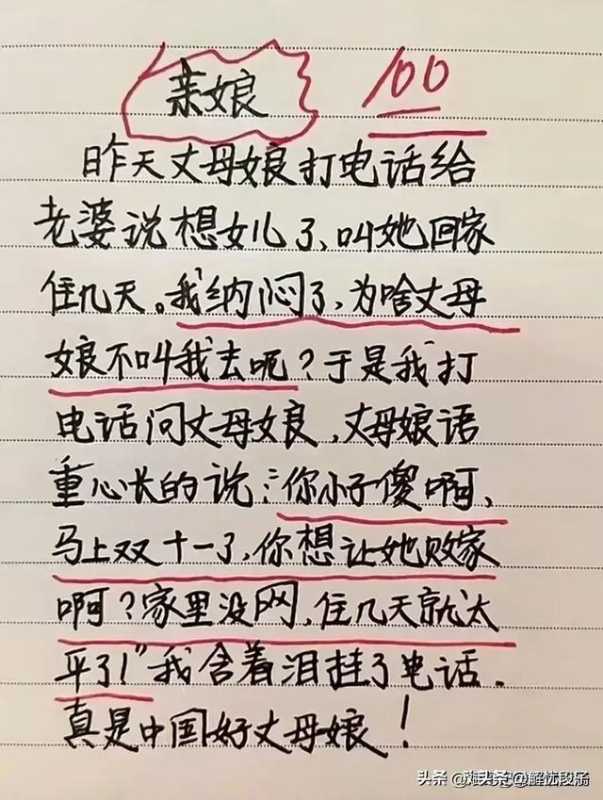 亲娘
100
昨天丈母娘打电话给
老婆说想女儿了、叫她回家
住几天。我纳闷了,为啥丈母
娘不叫我去呢?于是我打
电话问丈母娘,丈母娘语
重心长的说:你小子傻啊、
马上双十一了,你想让她败家
啊?家里没网,住几天就太
平了!”我含着泪挂了电话.
真是中国好丈母娘!
头条
头条
@解忧段子